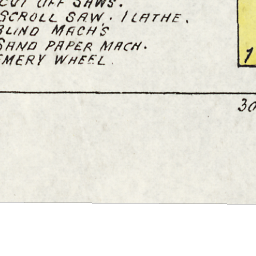 CUT OFF SAWS.
SCROLL SAW. 1 LATHE.
BLIND MACH'S
SAND PAPER MACH.
EMERY WHEEL.
1
30